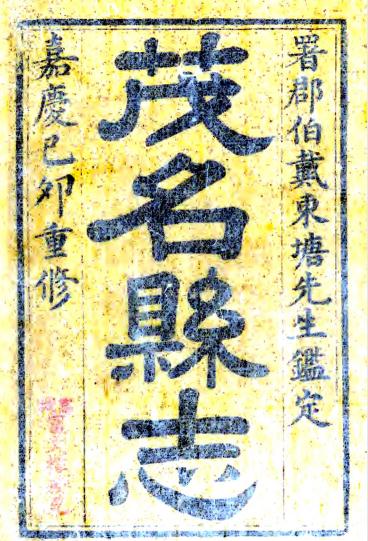 署郡伯戴東塘先生鑑定
茂名縣志
嘉慶己卯重修